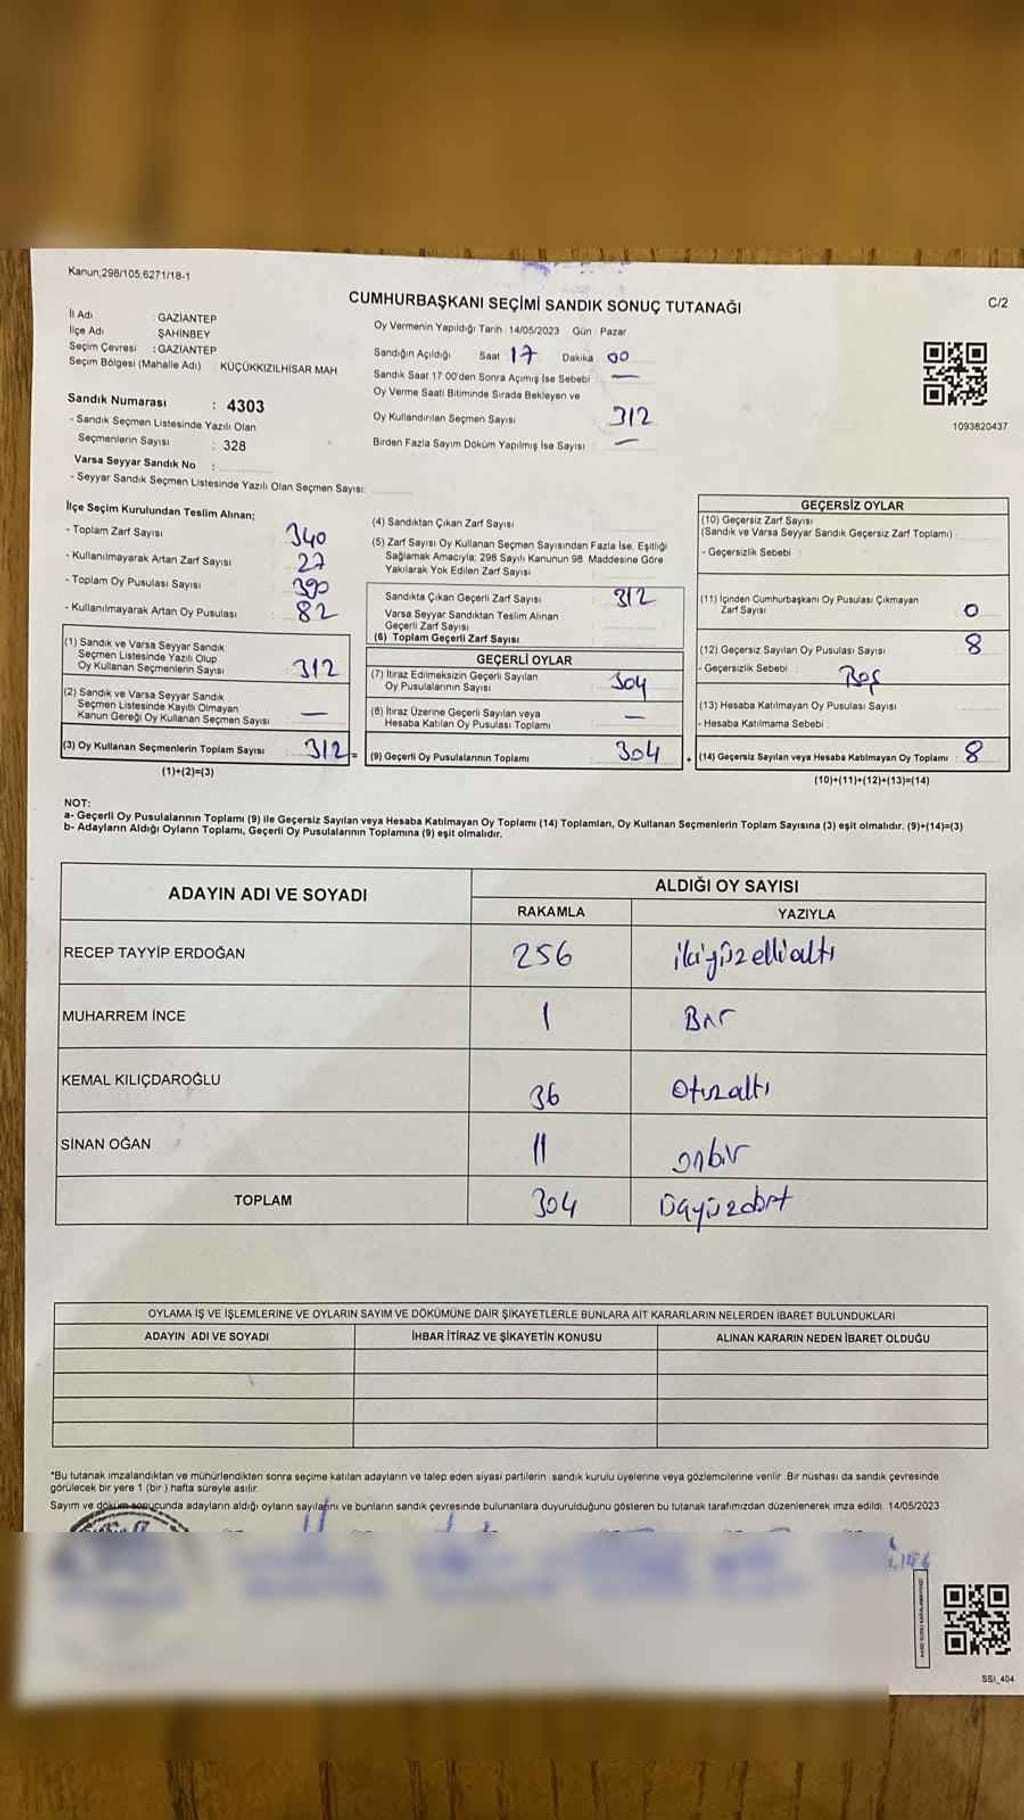 Kanun;298/105,6271/18-1
CUMHURBAŞKANI SEÇİMİ SANDIK SONUÇ TUTANAĞI
C/2
İl Adı : GAZİANTEP
İlçe Adı : ŞAHİNBEY
Seçim Çevresi : GAZİANTEP
Seçim Bölgesi (Mahalle Adı) KÜÇÜKKIZILHİSAR MAH
Sandık Numarası : 4303
- Sandık Seçmen Listesinde Yazılı Olan
Seçmenlerin Sayısı : 328
Varsa Seyyar Sandık No :
- Seyyar Sandık Seçmen Listesinde Yazılı Olan Seçmen Sayısı:
Oy Vermenin Yapıldığı Tarih : 14/05/2023 Gün : Pazar
Sandığın Açıldığı Saat 17 Dakika 00
Sandık Saat 17:00'den Sonra Açılmış İse Sebebi —
Oy Verme Saati Bitiminde Sırada Bekleyen ve
Oy Kullandırılan Seçmen Sayısı 312
Birden Fazla Sayım Döküm Yapılmış İse Sayısı —
1093820437
İlçe Seçim Kurulundan Teslim Alınan;
- Toplam Zarf Sayısı 340
- Kullanılmayarak Artan Zarf Sayısı 27
- Toplam Oy Pusulası Sayısı 390
- Kullanılmayarak Artan Oy Pusulası 82
(1) Sandık ve Varsa Seyyar Sandık
Seçmen Listesinde Yazılı Olup
Oy Kullanan Seçmenlerin Sayısı 312
(2) Sandık ve Varsa Seyyar Sandık
Seçmen Listesinde Kayıtlı Olmayan
Kanun Gereği Oy Kullanan Seçmen Sayısı —
(3) Oy Kullanan Seçmenlerin Toplam Sayısı 312 =
(1)+(2)=(3)
(4) Sandıktan Çıkan Zarf Sayısı
(5) Zarf Sayısı Oy Kullanan Seçmen Sayısından Fazla İse, Eşitliği
Sağlamak Amacıyla; 298 Sayılı Kanunun 98. Maddesine Göre
Yakılarak Yok Edilen Zarf Sayısı
Sandıkta Çıkan Geçerli Zarf Sayısı 312
Varsa Seyyar Sandıktan Teslim Alınan
Geçerli Zarf Sayısı
(6) Toplam Geçerli Zarf Sayısı
GEÇERLİ OYLAR
(7) İtiraz Edilmeksizin Geçerli Sayılan
Oy Pusulalarının Sayısı 304
(8) İtiraz Üzerine Geçerli Sayılan veya
Hesaba Katılan Oy Pusulası Toplamı —
(9) Geçerli Oy Pusulalarının Toplamı 304 +
GEÇERSİZ OYLAR
(10) Geçersiz Zarf Sayısı
(Sandık ve Varsa Seyyar Sandık Geçersiz Zarf Toplamı)
- Geçersizlik Sebebi :
(11) İçinden Cumhurbaşkanı Oy Pusulası Çıkmayan
Zarf Sayısı 0
(12) Geçersiz Sayılan Oy Pusulası Sayısı 8
- Geçersizlik Sebebi : Boş
(13) Hesaba Katılmayan Oy Pusulası Sayısı
- Hesaba Katılmama Sebebi :
(14) Geçersiz Sayılan veya Hesaba Katılmayan Oy Toplamı : 8
(10)+(11)+(12)+(13)=(14)
NOT:
a- Geçerli Oy Pusulalarının Toplamı (9) ile Geçersiz Sayılan veya Hesaba Katılmayan Oy Toplamı (14) Toplamları, Oy Kullanan Seçmenlerin Toplam Sayısına (3) eşit olmalıdır. (9)+(14)=(3)
b- Adayların Aldığı Oyların Toplamı, Geçerli Oy Pusulalarının Toplamına (9) eşit olmalıdır.
ADAYIN ADI VE SOYADI
ALDIĞI OY SAYISI
RAKAMLA YAZIYLA
RECEP TAYYİP ERDOĞAN 256 ikiyüzellialtı
MUHARREM İNCE 1 Bir
KEMAL KILIÇDAROĞLU 36 Otuzaltı
SİNAN OĞAN 11 onbir
TOPLAM 304 Üçyüzdört
OYLAMA İŞ VE İŞLEMLERİNE VE OYLARIN SAYIM VE DÖKÜMÜNE DAİR ŞİKAYETLERLE BUNLARA AİT KARARLARIN NELERDEN İBARET BULUNDUKLARI
ADAYIN ADI VE SOYADI İHBAR İTİRAZ VE ŞİKAYETİN KONUSU ALINAN KARARIN NEDEN İBARET OLDUĞU
*Bu tutanak imzalandıktan ve mühürlendikten sonra seçime katılan adayların ve talep eden siyasi partilerin sandık kurulu üyelerine veya gözlemcilerine verilir. Bir nüshası da sandık çevresinde
görülecek bir yere 1 (bir ) hafta süreyle asılır.
Sayım ve döküm sonucunda adayların aldığı oyların sayılarını ve bunların sandık çevresinde bulunanlara duyurulduğunu gösteren bu tutanak tarafımızdan düzenlenerek imza edildi. 14/05/2023
SSI_404